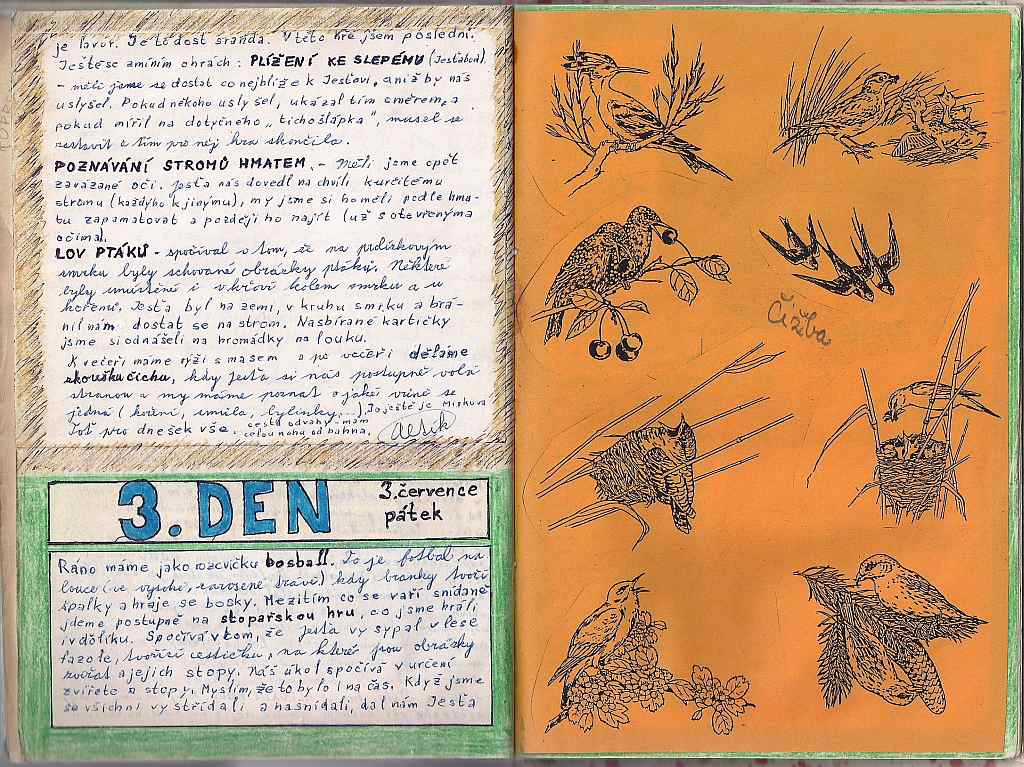 je lavor. Je to dost sranda. V této hře jsem poslední.
Ještě se zmíním o hrách: PLÍŽENÍ KE SLEPÉMU (Jesťabovi).
- měli jsme se dostat co nejblíže k Jesťovi, aniž by nás
uslyšel. Pokud někoho uslyšel, ukázal tím směrem, a
pokud mířil na dotyčného „tichošlápka", musel se
zastavit a tím pro něj hra skončila.
POZNÁVÁNÍ STROMŮ HMATEM. - Měli jsme opět
zavázané oči. Jesťa nás dovedl na chvíli k určitému
stromu (každýho k jinýmu), my jsme si ho měli podle hma-
tu zapamatovat a později ho najít (už s otevřenýma
očima).
LOV PTÁKŮ - spočíval v tom, že na
smrku byly schované obrázky ptáků. Některé
byly umístěné i v křoví kolem smrku a u
kořenů. Jesťa byl na zemi, v kruhu smrku a brá-
nil nám dostat se na strom. Nasbírané kartičky
jsme si odnášeli na hromádky na louku.
K večeři máme rýži s masem a po večeři děláme
zkoušku čichu, kdy Jesťa si nás postupně volá
stranou a my máme poznat o jaké vůně se
jedná (koření, umělá, bylinky,...). Jo ještě je
Toť pro dnešek vše. cesta odvahy - mám
celou nohu od bahna.
3. DEN
3. července
pátek
Ráno máme jako rozcvičku bosball. To je fotbal na
louce (ve vysoké, zarosené trávě) kdy branky tvoří
špalky a hraje se bosky. Mezitím co se vaří snídaně
jdeme postupně na stopařskou hru, co jsme hráli
i v dolíku. Spočívá v tom, že Jesťa vysypal v lese
fazole, tvořící cestičku, na které jsou obrázky
zvířat a jejich stopy. Náš úkol spočívá v určení
zvířete a stopy. Myslím, že to bylo i na čas. Když jsme
se všichni vystřídali a nasnídali, dal nám Jesťa
Čižba